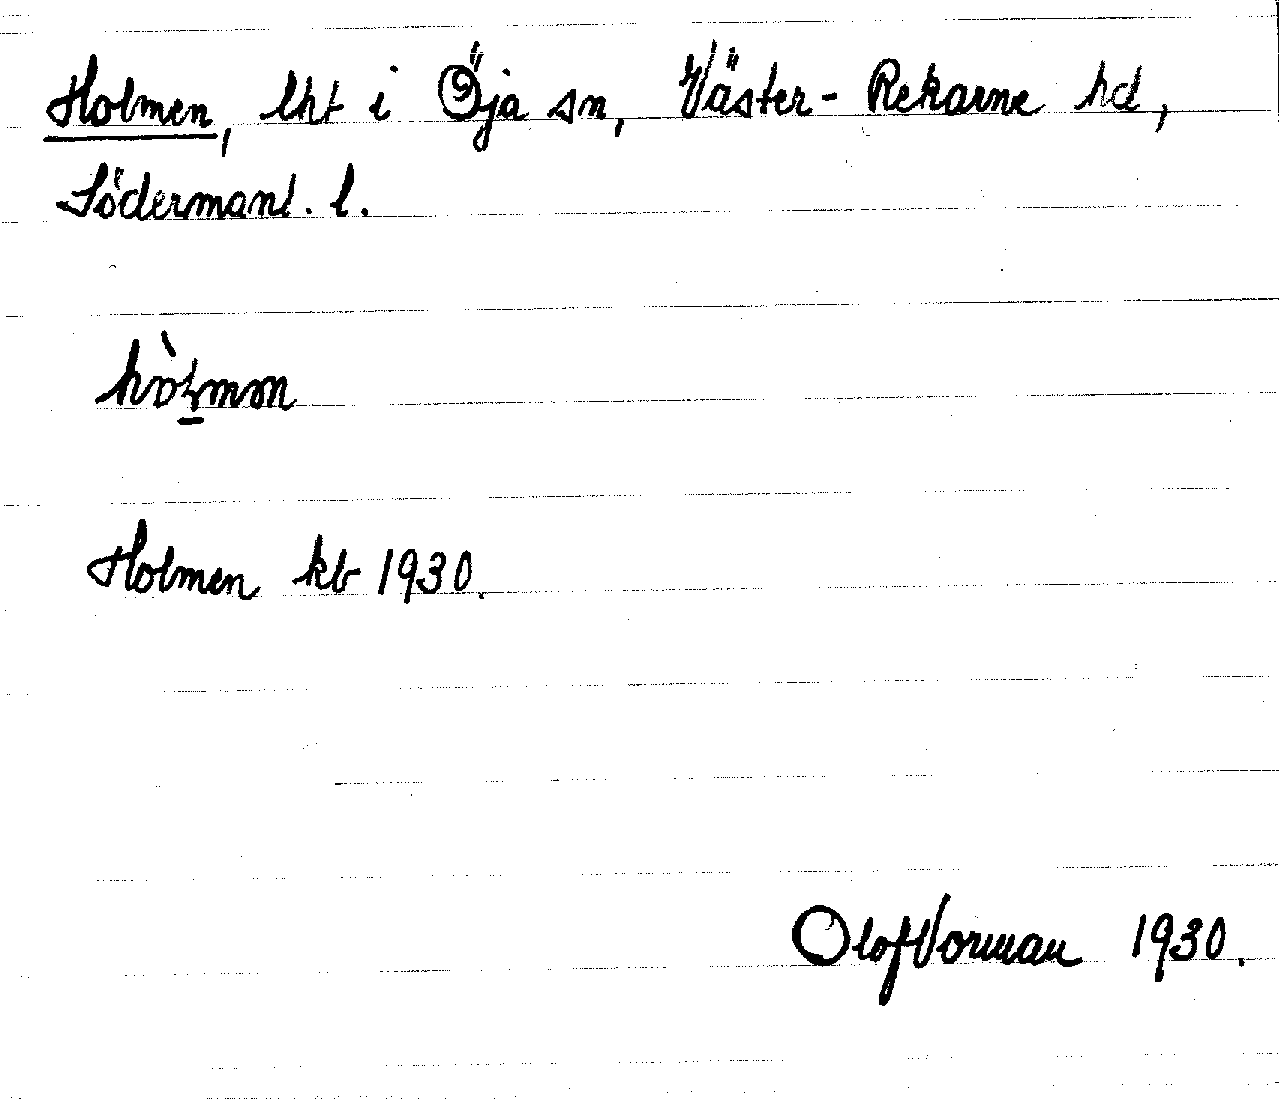 Holmen, lht i Öja sn, Väster-Rekarne hd,
Södermanl. l.
Holmen kb 1930.
Olof Vorman 1930.